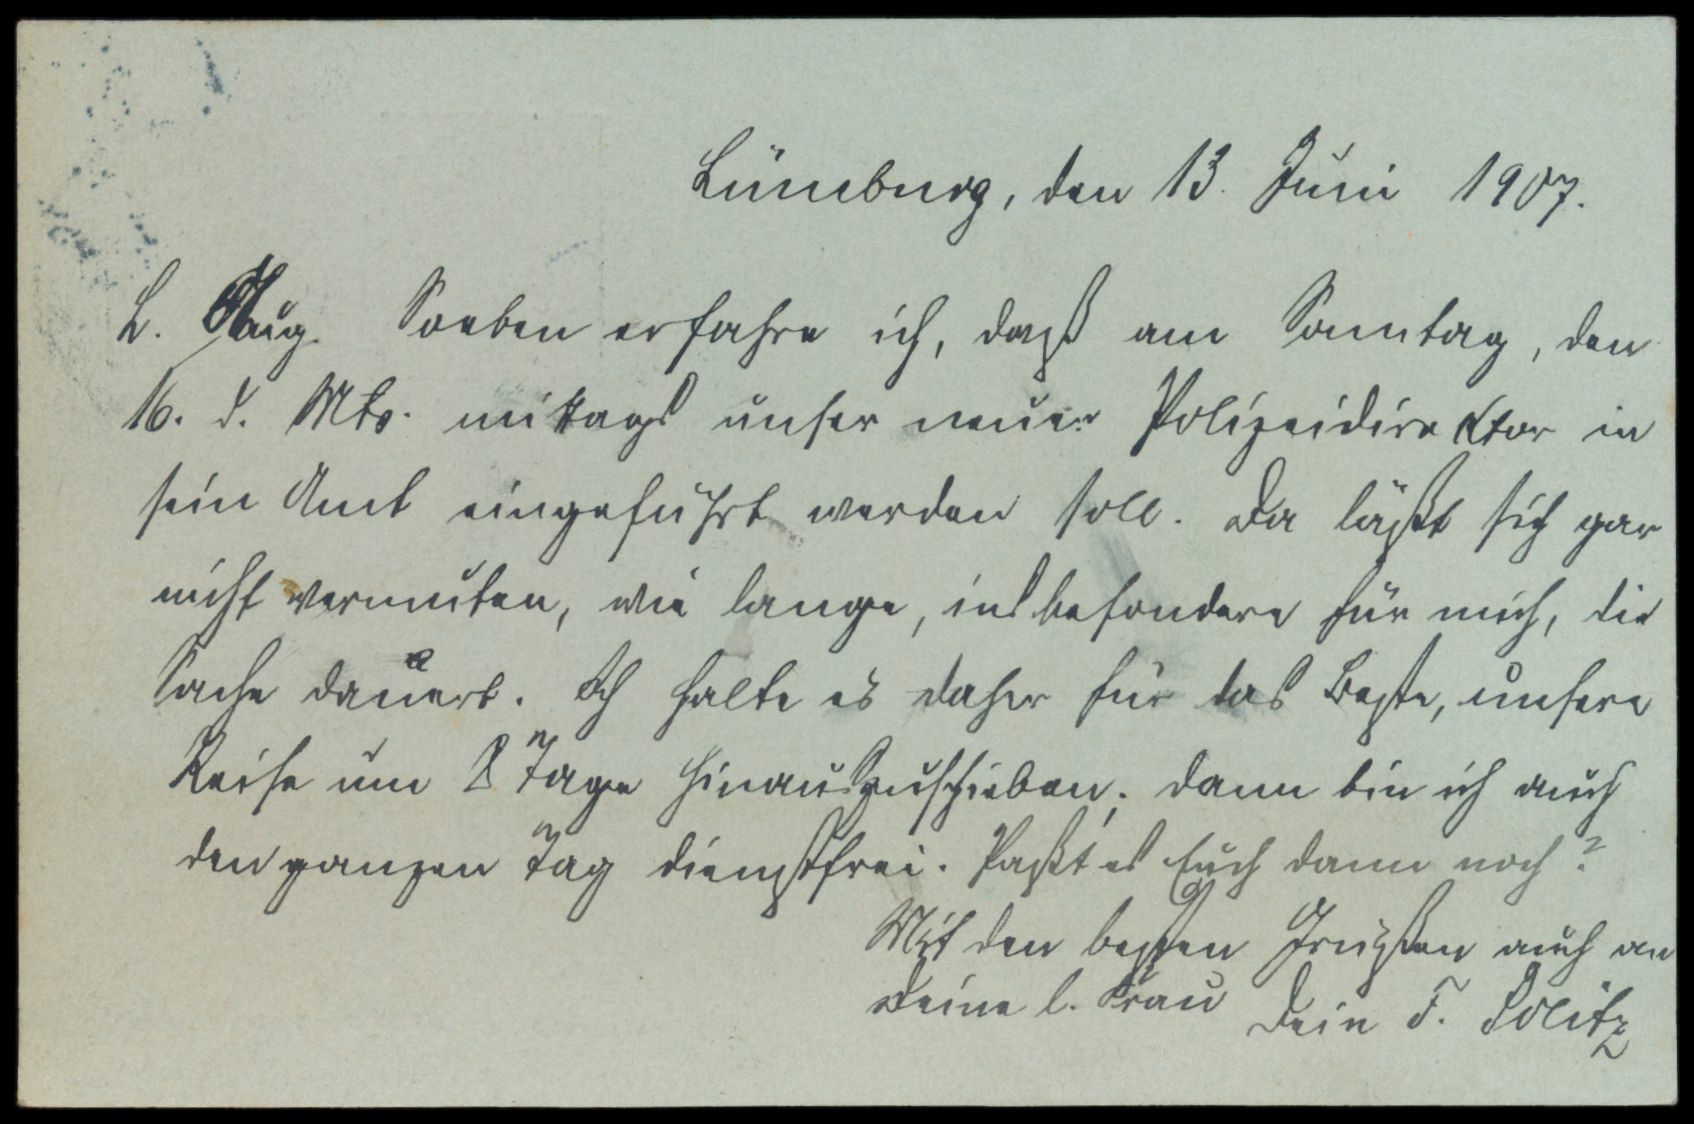 Lüneburg, den 13. Juni 1907.
L. Aug. Soeben erfahre ich, daß am Sonntag, den
16. d. Mts. mittags unser neuer Polizeidirektor in
sein Amt eingeführt werden soll. Da läßt sich gar
nicht vermuten, wie lange, insbesondere für mich, die
Sache dauert. Ich halte es daher für das Beste, unsere
Reise um 8 Tage hinauszuschieben. Dann bin ich auch
den ganzen Tag dienstfrei. Paßt es Euch dann noch?
Mit den besten Grüßen auch an
Deine l. Frau Dein F.